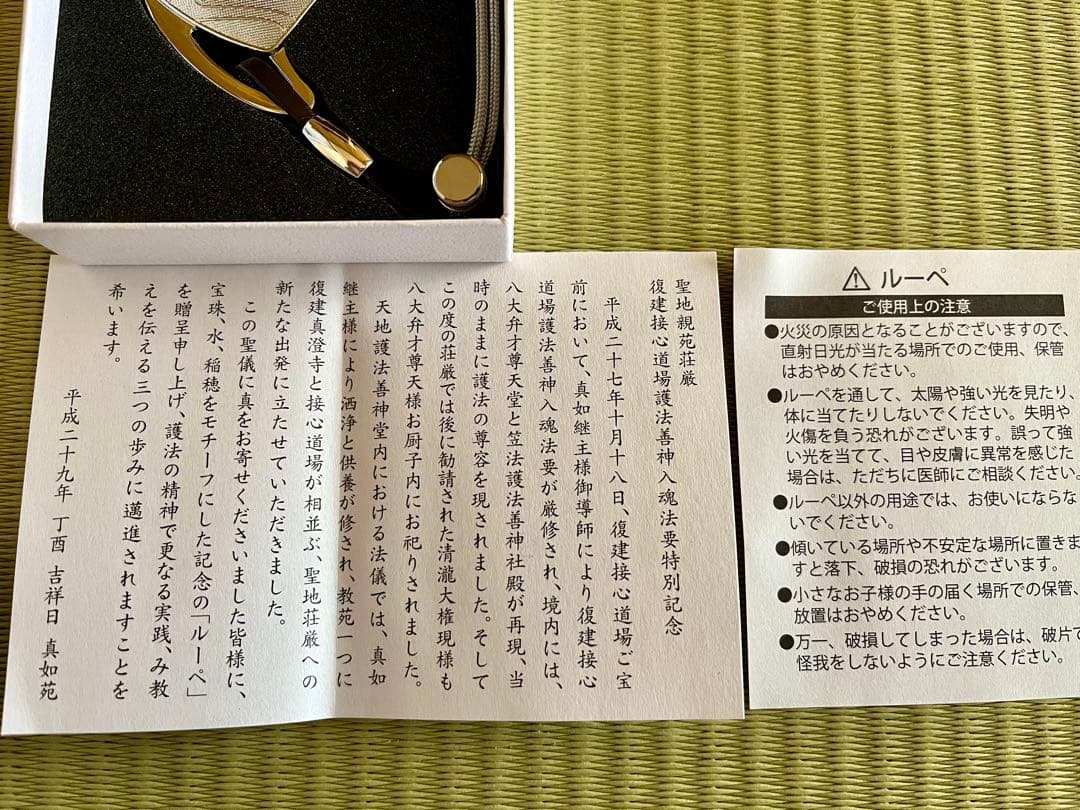 聖地親苑荘厳
復建接心道場護法善神入魂法要特別記念
平成二十七年十月十八日、復建接心道場ご宝
前において、真如継主様御導師により復建接心
道場護法善神入魂法要が厳修され、境内には、
八大弁才尊天堂と笠法護法善神社殿が再現、当
時のままに護法の尊容を現されました。そして
この度の荘厳では後に勧請された清瀧大権現様も
八大弁才尊天様お厨子内にお祀りされました。
天地護法善神堂内における法儀では、真如
継主様により洒浄と供養が修され、教苑一つに
復建真澄寺と接心道場が相並ぶ、聖地荘厳への
新たな出発に立たせていただきました。
この聖儀に真をお寄せくださいました皆様に、
宝珠、水、稲穂をモチーフにした記念の「ルーペ」
を贈呈申し上げ、護法の精神で更なる実践、み教
えを伝える三つの歩みに邁進されますことを
希います。
平成二十九年 丁酉 吉祥日 真如苑
⚠ ルーペ
ご使用上の注意
●火災の原因となることがございますので、
直射日光が当たる場所でのご使用、保管
はおやめください。
●ルーペを通して、太陽や強い光を見たり、
体に当てたりしないでください。失明や
火傷を負う恐れがございます。誤って強
い光を当てて、目や皮膚に異常を感じた
場合は、ただちに医師にご相談ください。
●ルーペ以外の用途では、お使いにならな
いでください。
●傾いている場所や不安定な場所に置きま
すと落下、破損の恐れがございます。
●小さなお子様の手の届く場所での保管、
放置はおやめください。
●万一、破損してしまった場合は、破片で
怪我をしないようにご注意ください。